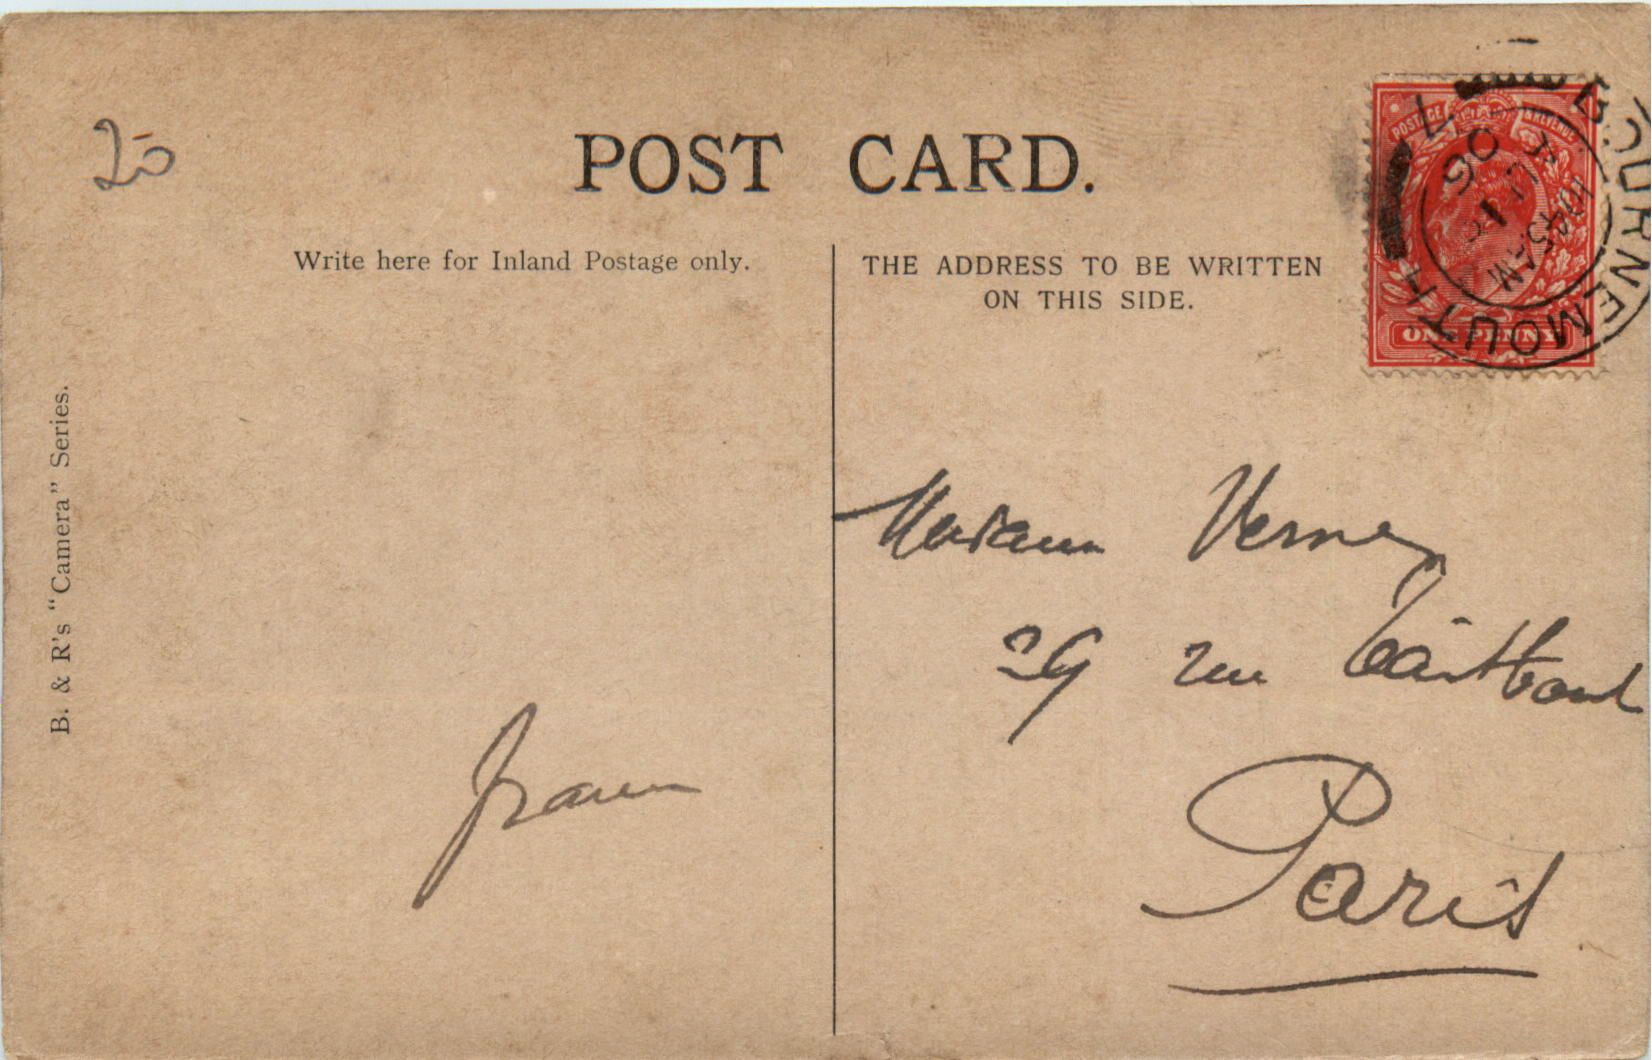 20
POST CARD.
Write here for Inland Postage only.
THE ADDRESS TO BE WRITTEN
ON THIS SIDE.
POSTAGE & REVENUE
ONE PENNY
BOURNEMOUTH
10 45 AM
06
7
B. & R's "Camera" Series.
Madame Verney
29 rue Taitbout
Paris